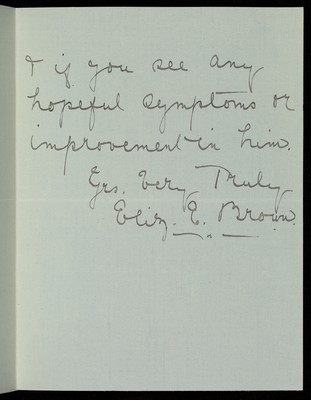 & if you see any
hopeful symptoms or
improvement in him.
Yrs. Very Truly
Eliz. E. Brown.